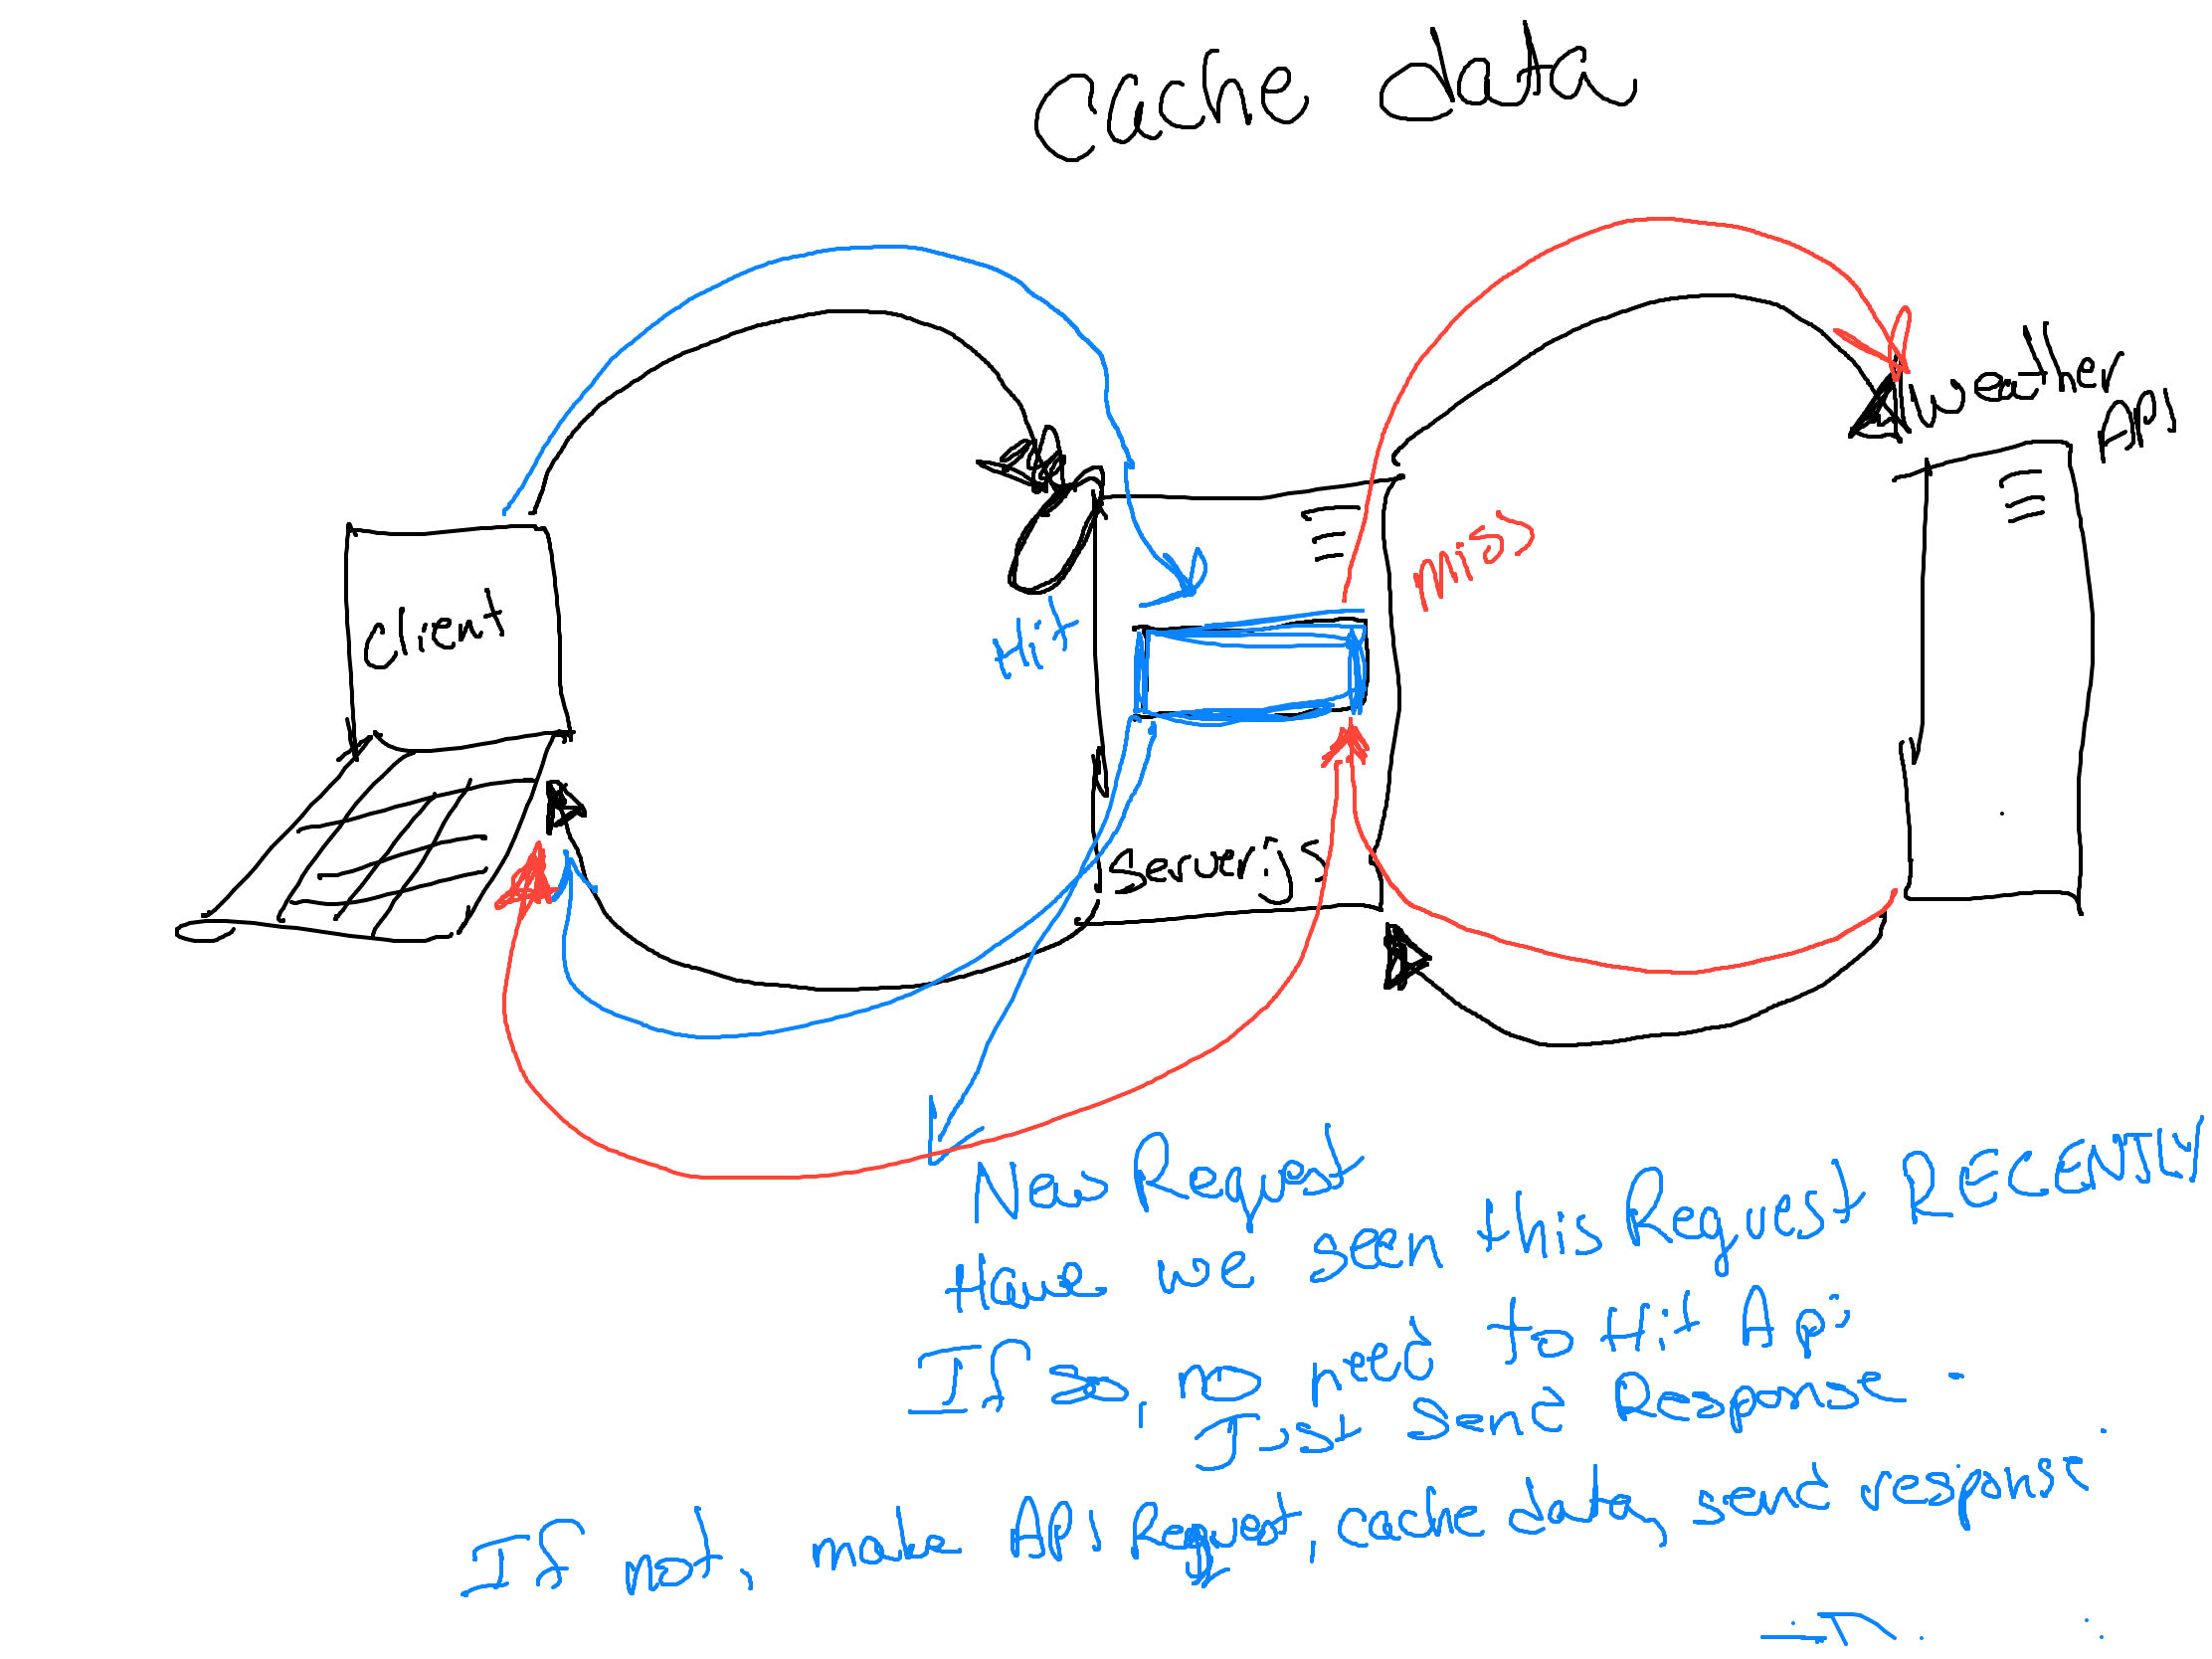 Cache data
Weather
API
Client
Hit
miss
Server.js
New Request
Have we seen this Request RECENTLY
If so, no need to Hit Api
Just send Response
If not, make API Request, cache data, send response